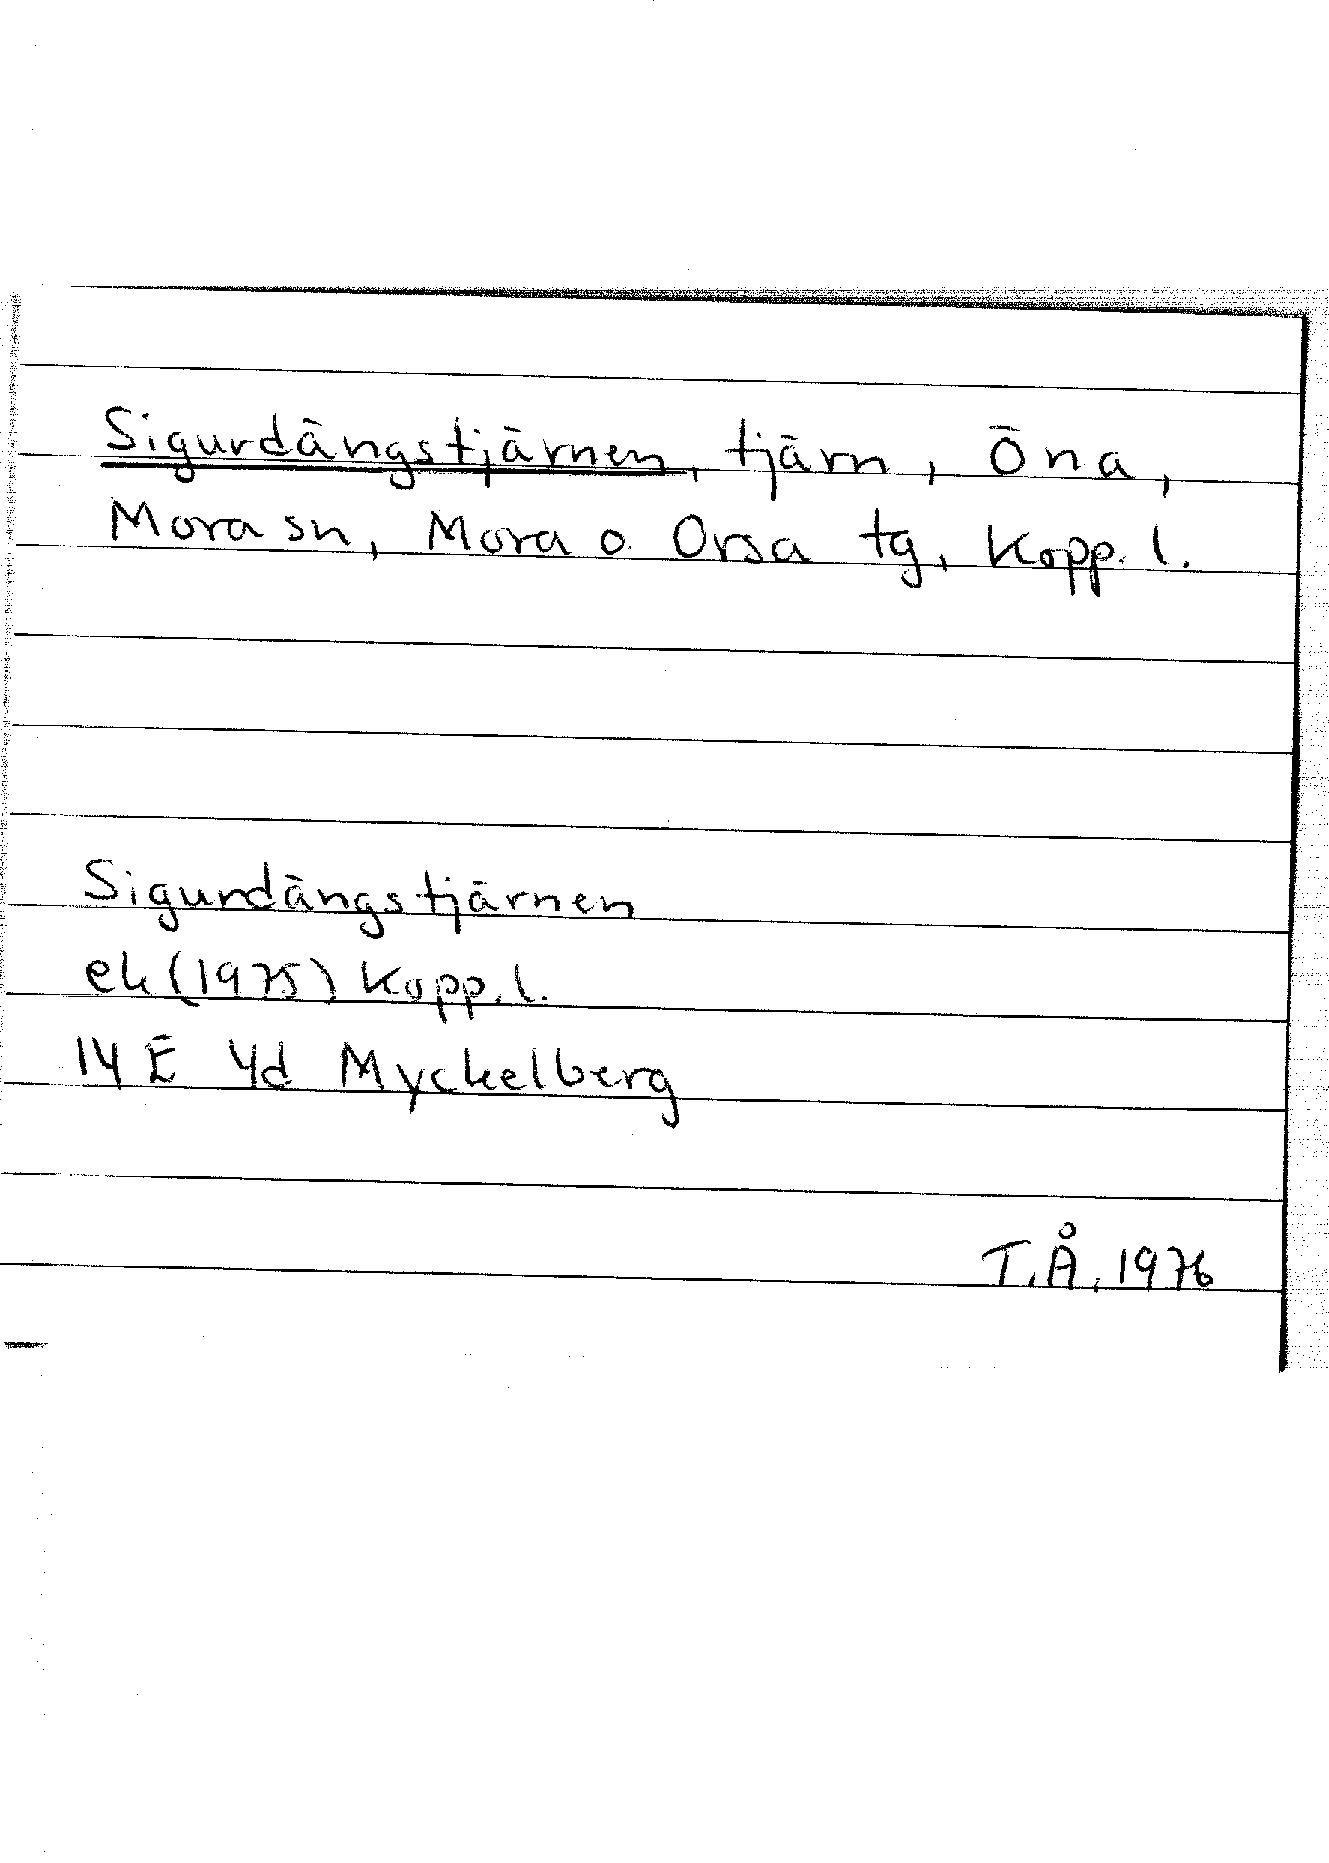 Sigurdängstjärnen, tjärn, Öna,
Mora sn, Mora o. Orsa tg, Kopp. l.
Sigurdängstjärnen
ek (1975) Kopp. l.
14 E 4d Myckelberg
T.Å, 1976